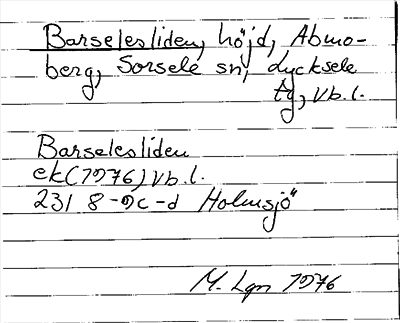 Barselesliden, höjd, Abmo-
berg, Sorsele sn, Lycksele
tg, Vb.l.
Barselesliden
ek(1976) Vb.l.
231 8-9c-d Holmsjö
M. Lgn 1976